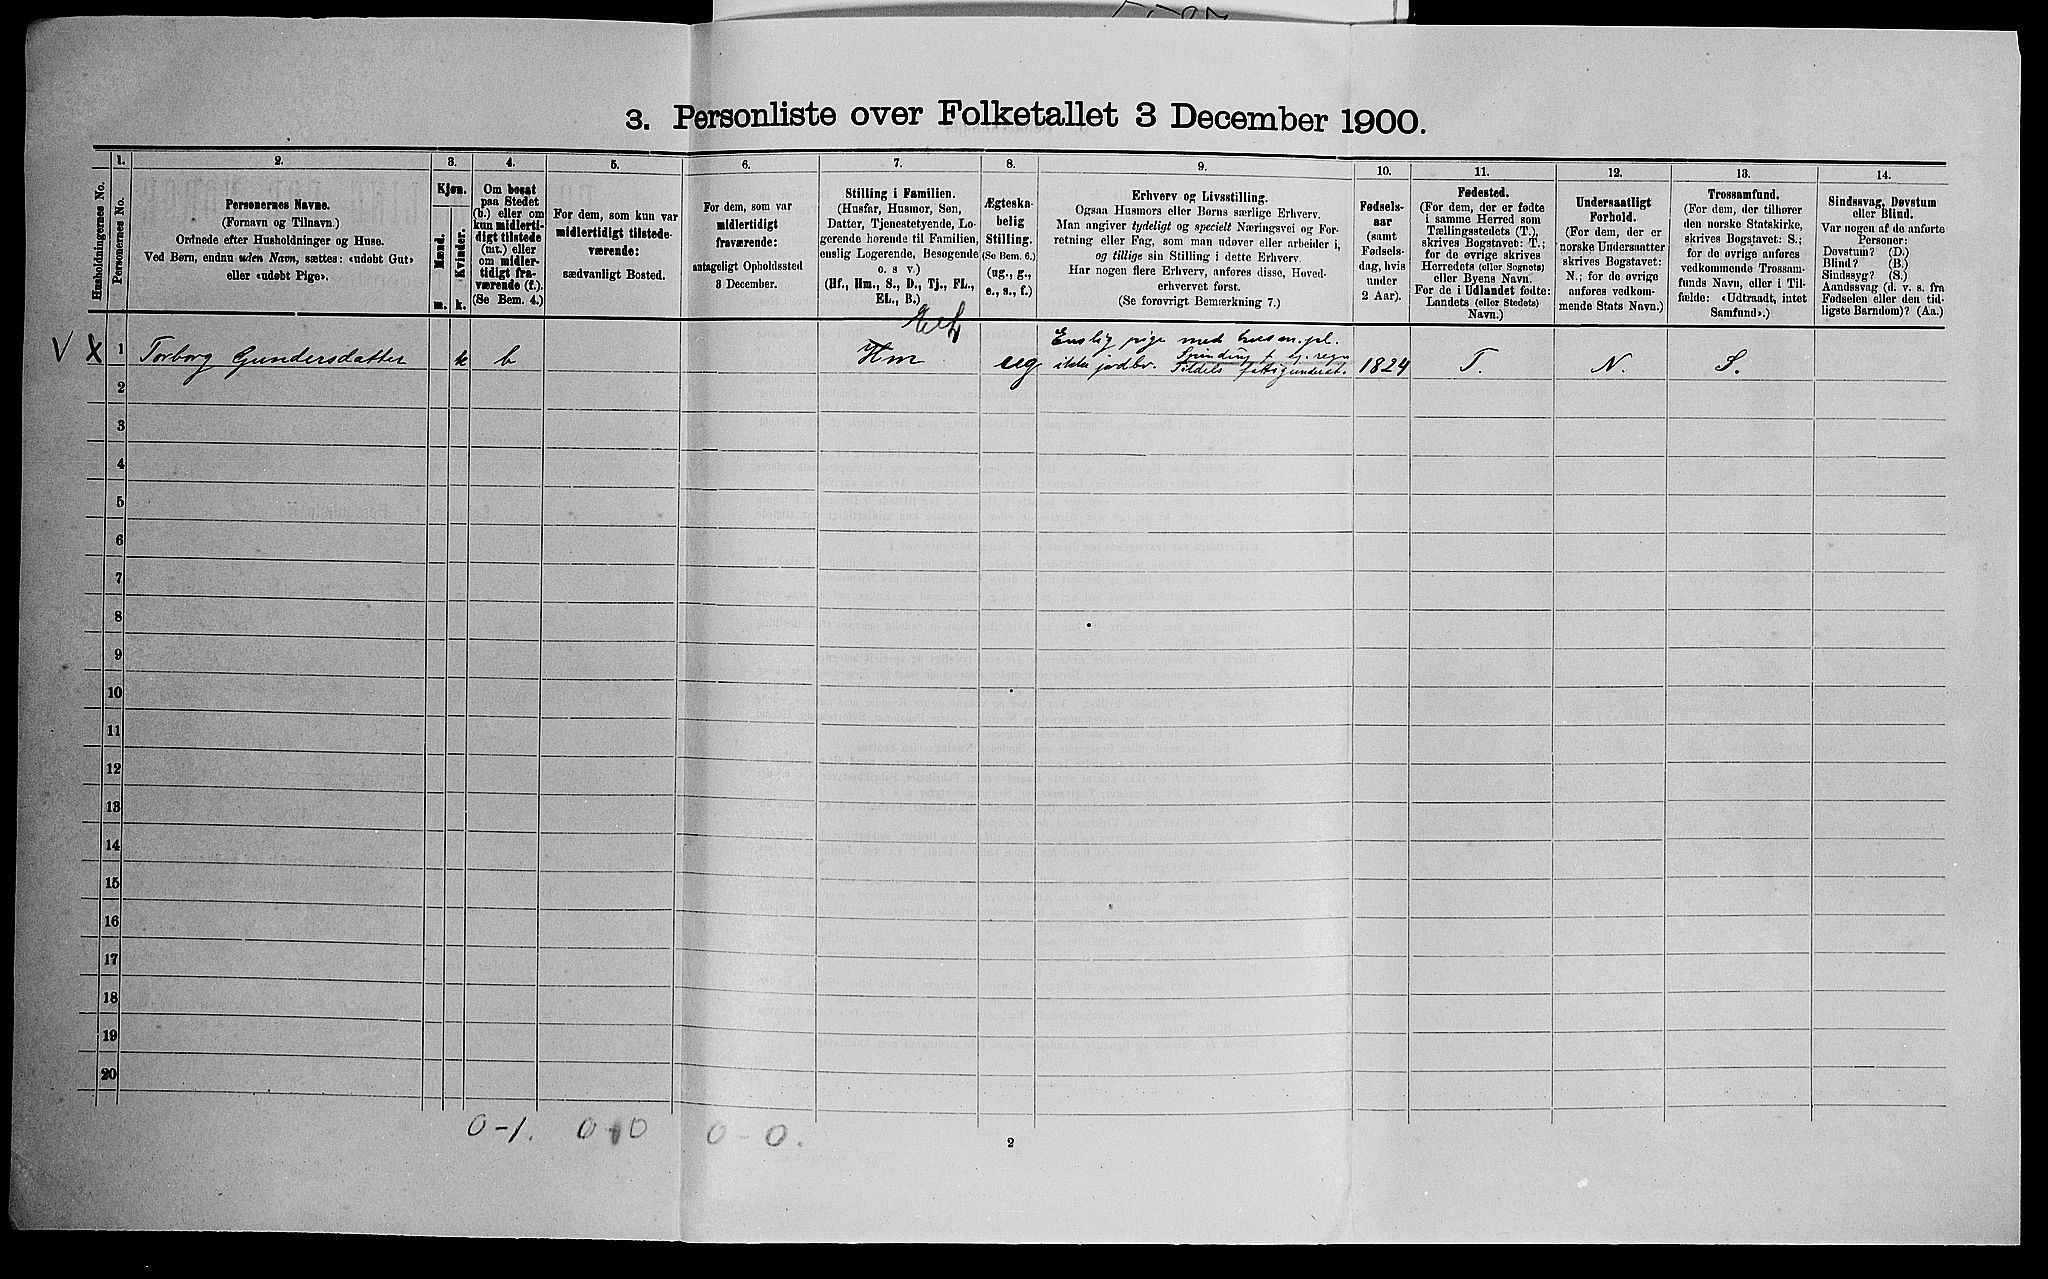 3. Personliste over Folketallet 3 December 1900.
Husholdningernes No.
1.
Personernes No.
2.
Personernes Navne.
(Fornavn og Tilnavn.)
Ordnede efter Husholdninger og Huse.
Ved Børn, endnu uden Navn, sættes: «udøbt Gut»
eller «udøbt Pige».
3.
Kjøn.
Mænd.
Kvinder.
m.
k.
4.
Om bosat
paa Stedet
(b.) eller om
kun midlerti-
digt tilstede
(mt.) eller
om midler-
tidigt fra-
værende (f.).
(Se Bem. 4.)
5.
For dem, som kun var
midlertidigt tilstede-
værende:
sædvanligt Bosted.
6.
For dem, som var
midlertidigt
fraværende:
antageligt Opholdssted
3 December.
7.
Stilling i Familien.
(Husfar, Husmor, Søn,
Datter, Tjenestetyende, Lo-
gerende hørende til Familien,
enslig Logerende, Besøgende
o. s v.)
(Hf., Hm., S., D., Tj., FL.,
EL., B.)
8.
Ægteska-
belig
Stilling.
(Se Bem. 6.)
(ug., g.,
e., s., f.)
9.
Erhverv og Livsstilling.
Ogsaa Husmors eller Børns særlige Erhverv.
Man angiver tydeligt og specielt Næringsvei og For-
retning eller Fag, som man udøver eller arbeider i,
og tillige sin Stilling i dette Erhverv.
Har nogen flere Erhverv, anføres disse, Hoved-
erhvervet først.
(Se forøvrigt Bemærkning 7.)
10.
Fødsels-
aar
(samt
Fødsels-
dag, hvis
under
2 Aar).
11.
Fødested.
(For dem, der er fødte
i samme Herred som
Tællingsstedets (T.),
skrives Bogstavet: T.;
for de øvrige skrives
Herredets (eller Sognets)
eller Byens Navn.
For de i Udlandet fødte:
Landets (eller Stedets)
Navn.)
12.
Undersaatligt
Forhold.
(For dem, der er
norske Undersaatter
skrives Bogstavet:
N.; for de øvrige
anføres vedkom-
mende Stats Navn.)
13.
Trossamfund.
(For dem, der tilhører
den norske Statskirke,
skrives Bogstavet: S.;
for de øvrige anføres
vedkommende Trossam-
funds Navn, eller i Til-
fælde: «Udtraadt, intet
Samfund».)
14.
Sindssvag, Døvstum
eller Blind.
Var nogen af de anførte
Personer:
Døvstum? (D.)
Blind? (B.)
Sindssyg? (S.)
Aandssvag (d. v. s. fra
Fødselen eller den tid-
ligste Barndom)? (Aa.)
V X 1 Torborg Gundersdatter k b Hm ug
Enslig pige med husm.pl.
ikke jordbr. Spinding
1824 T. N. S.
2
3
4
5
6
7
8
9
10
11
12
13
14
15
16
17
18
19
20
0-1. 0-0 0-0.
2